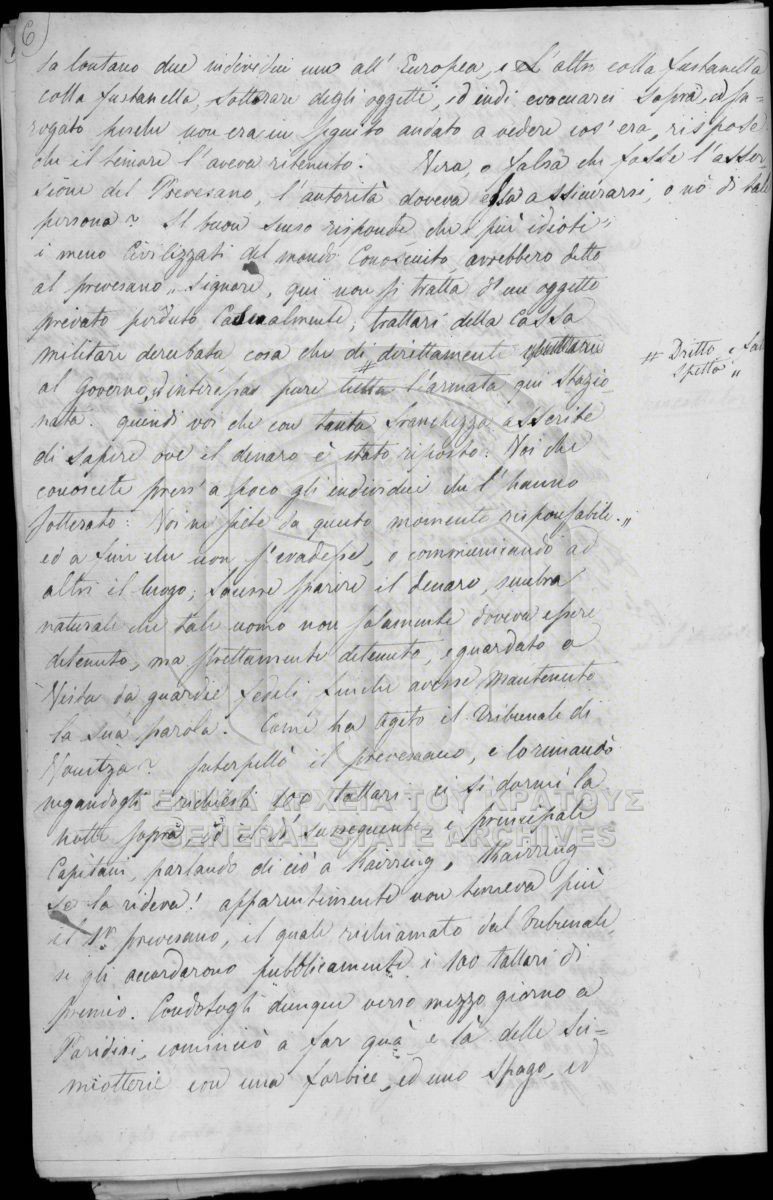 6
da lontano due individui uno all' Europea, e L'altro colla fustanella
colla fustanella, sotterare degli oggetti, ed indi evacuarci sopra, ed in-
rogato perche non era in seguito andato a vedere cos' era, rispose
che il timore l'aveva ritenuto. Vera, o falsa che fosse l'asser-
sione del Prevesano, l'autorità doveva essa assicurarsi, o nò di tale
persona? Il buon senso risponde, che i più idioti"
i meno Civilizzati del mondo Conosciuto, avrebbero detto
al prevesano „ Signore, qui non si tratta d'un oggetto
privato perduto Casualmente, trattasi della Cassa
militare derubata cosa che di direttamente spettare
al Governo, interessa pure tutta l'armata qui Stazio-
nata. quindi voi che con tanta franchezza asserite
di sapere ove il denaro è stato riposto. Voi che
conoscete press' a poco gli individui che l'hanno
sotterato: Voi ne siete da questo momento responsabile.„
ed a fin che non s'evadesse, o communicando ad
altri il luogo, facesse sparire il denaro, sembra
naturale che tale uomo non solamente doveva essere
detenuto, ma strettamente detenuto, e guardato a
Vista da guardie fedeli finche avesse mantenuto
la sua parola. Come ha agito il Tribunale di
Vonitza? Interpellò il prevesano, e lo rimandò
negandogli i richiesti 100 tallari. ci si dormì la
notte sopra ed il dì susseguente i principali
Capitani, parlando di ciò a Kairring, Kairring
se la rideva! apparentemente non temeva più
il Sr. prevesano, il quale richiamato dal Tribunale
se gli accordarono pubblicamente i 100 tallari di
premio. Condotogli dunque verso mezzo giorno a
Paridisi, cominciò a far quà e là delle Sci-
miotterie con una forbice, ed uno Spago, ed
# Dritto e
spetta „
ΓΕΝΙΚΑ ΑΡΧΕΙΑ ΤΟΥ ΚΡΑΤΟΥΣ
GENERAL STATE ARCHIVES